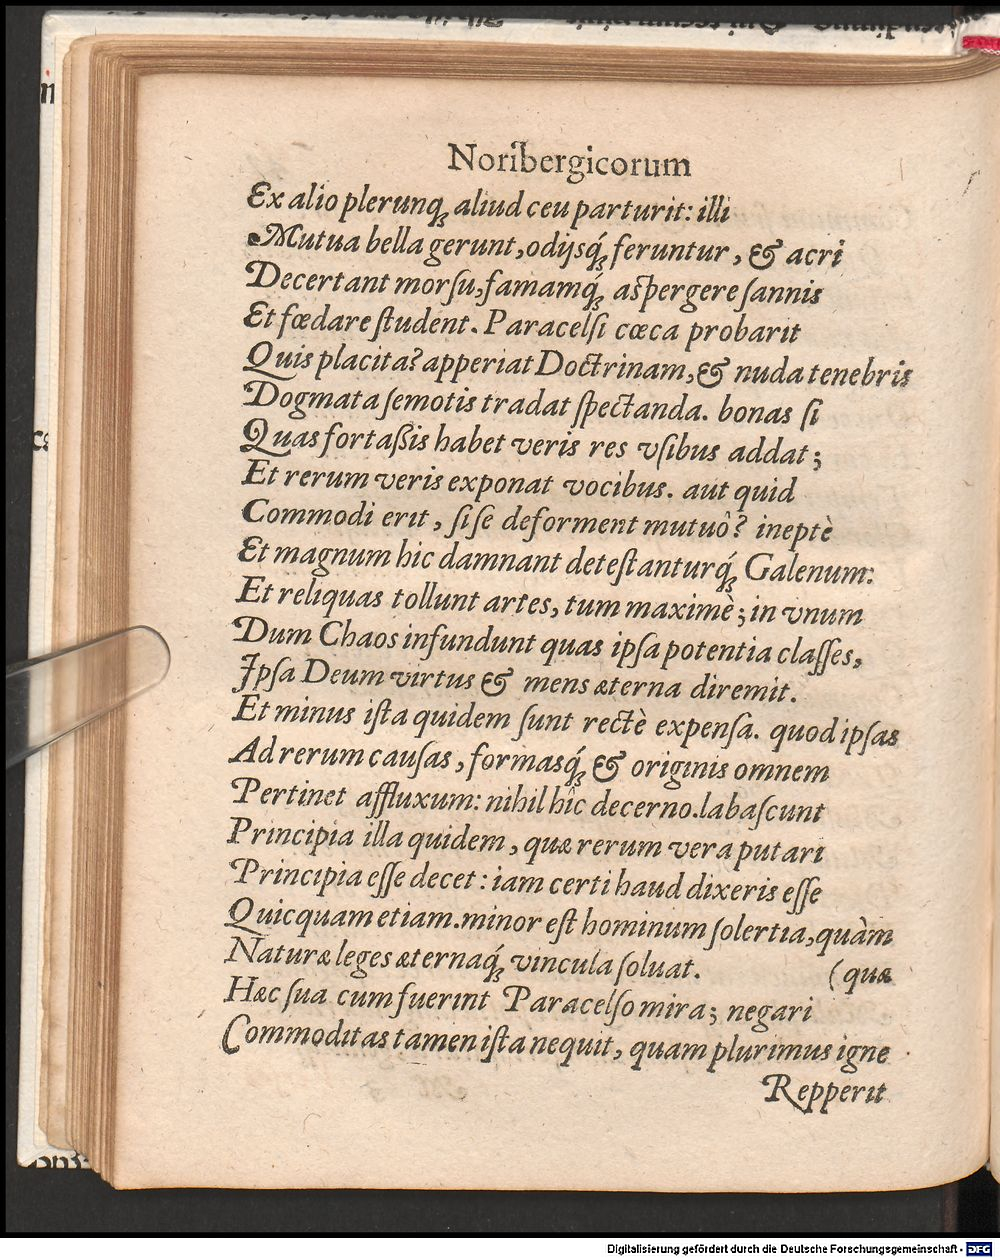 Noribergicorum
Ex alio plerunq́ꝫ aliud ceu parturit: illi
Mutua bella gerunt, odijsq́ꝫ feruntur, & acri
Decertant morſu, famamq́ꝫ aſpergere ſannis
Et fœdare ſtudent. Paracelſi cœca probarit
Quis placita? apperiat Doctrinam, & nuda tenebris
Dogmata ſemotis tradat ſpectanda. bonas ſi
Quas fortaßis habet veris res vſibus addat;
Et rerum veris exponat vocibus. aut quid
Commodi erit, ſi ſe deforment mutuô? ineptè
Et magnum hic damnant deteſtanturq́ꝫ Galenum:
Et reliquas tollunt artes, tum maximè; in vnum
Dum Chaos infundunt quas ipſa potentia claſſes,
Ipſa Deum virtus & mens æterna diremit.
Et minus iſta quidem ſunt rectè expenſa. quod ipſas
Ad rerum cauſas, formasq́ꝫ & originis omnem
Pertinet affluxum: nihil hîc decerno. labaſcunt
Principia illa quidem, quæ rerum vera putari
Principia eſſe decet: iam certi haud dixeris eſſe
Quicquam etiam. minor eſt hominum ſolertia, quàm
Naturæ leges æternaq́ꝫ vincula ſoluat. (quæ
Hæc ſua cum fuerint Paracelſo mira; negari
Commoditas tamen iſta nequit, quam plurimus igne
Repperit
Digitalisierung gefördert durch die Deutsche Forschungsgemeinschaft - DFG